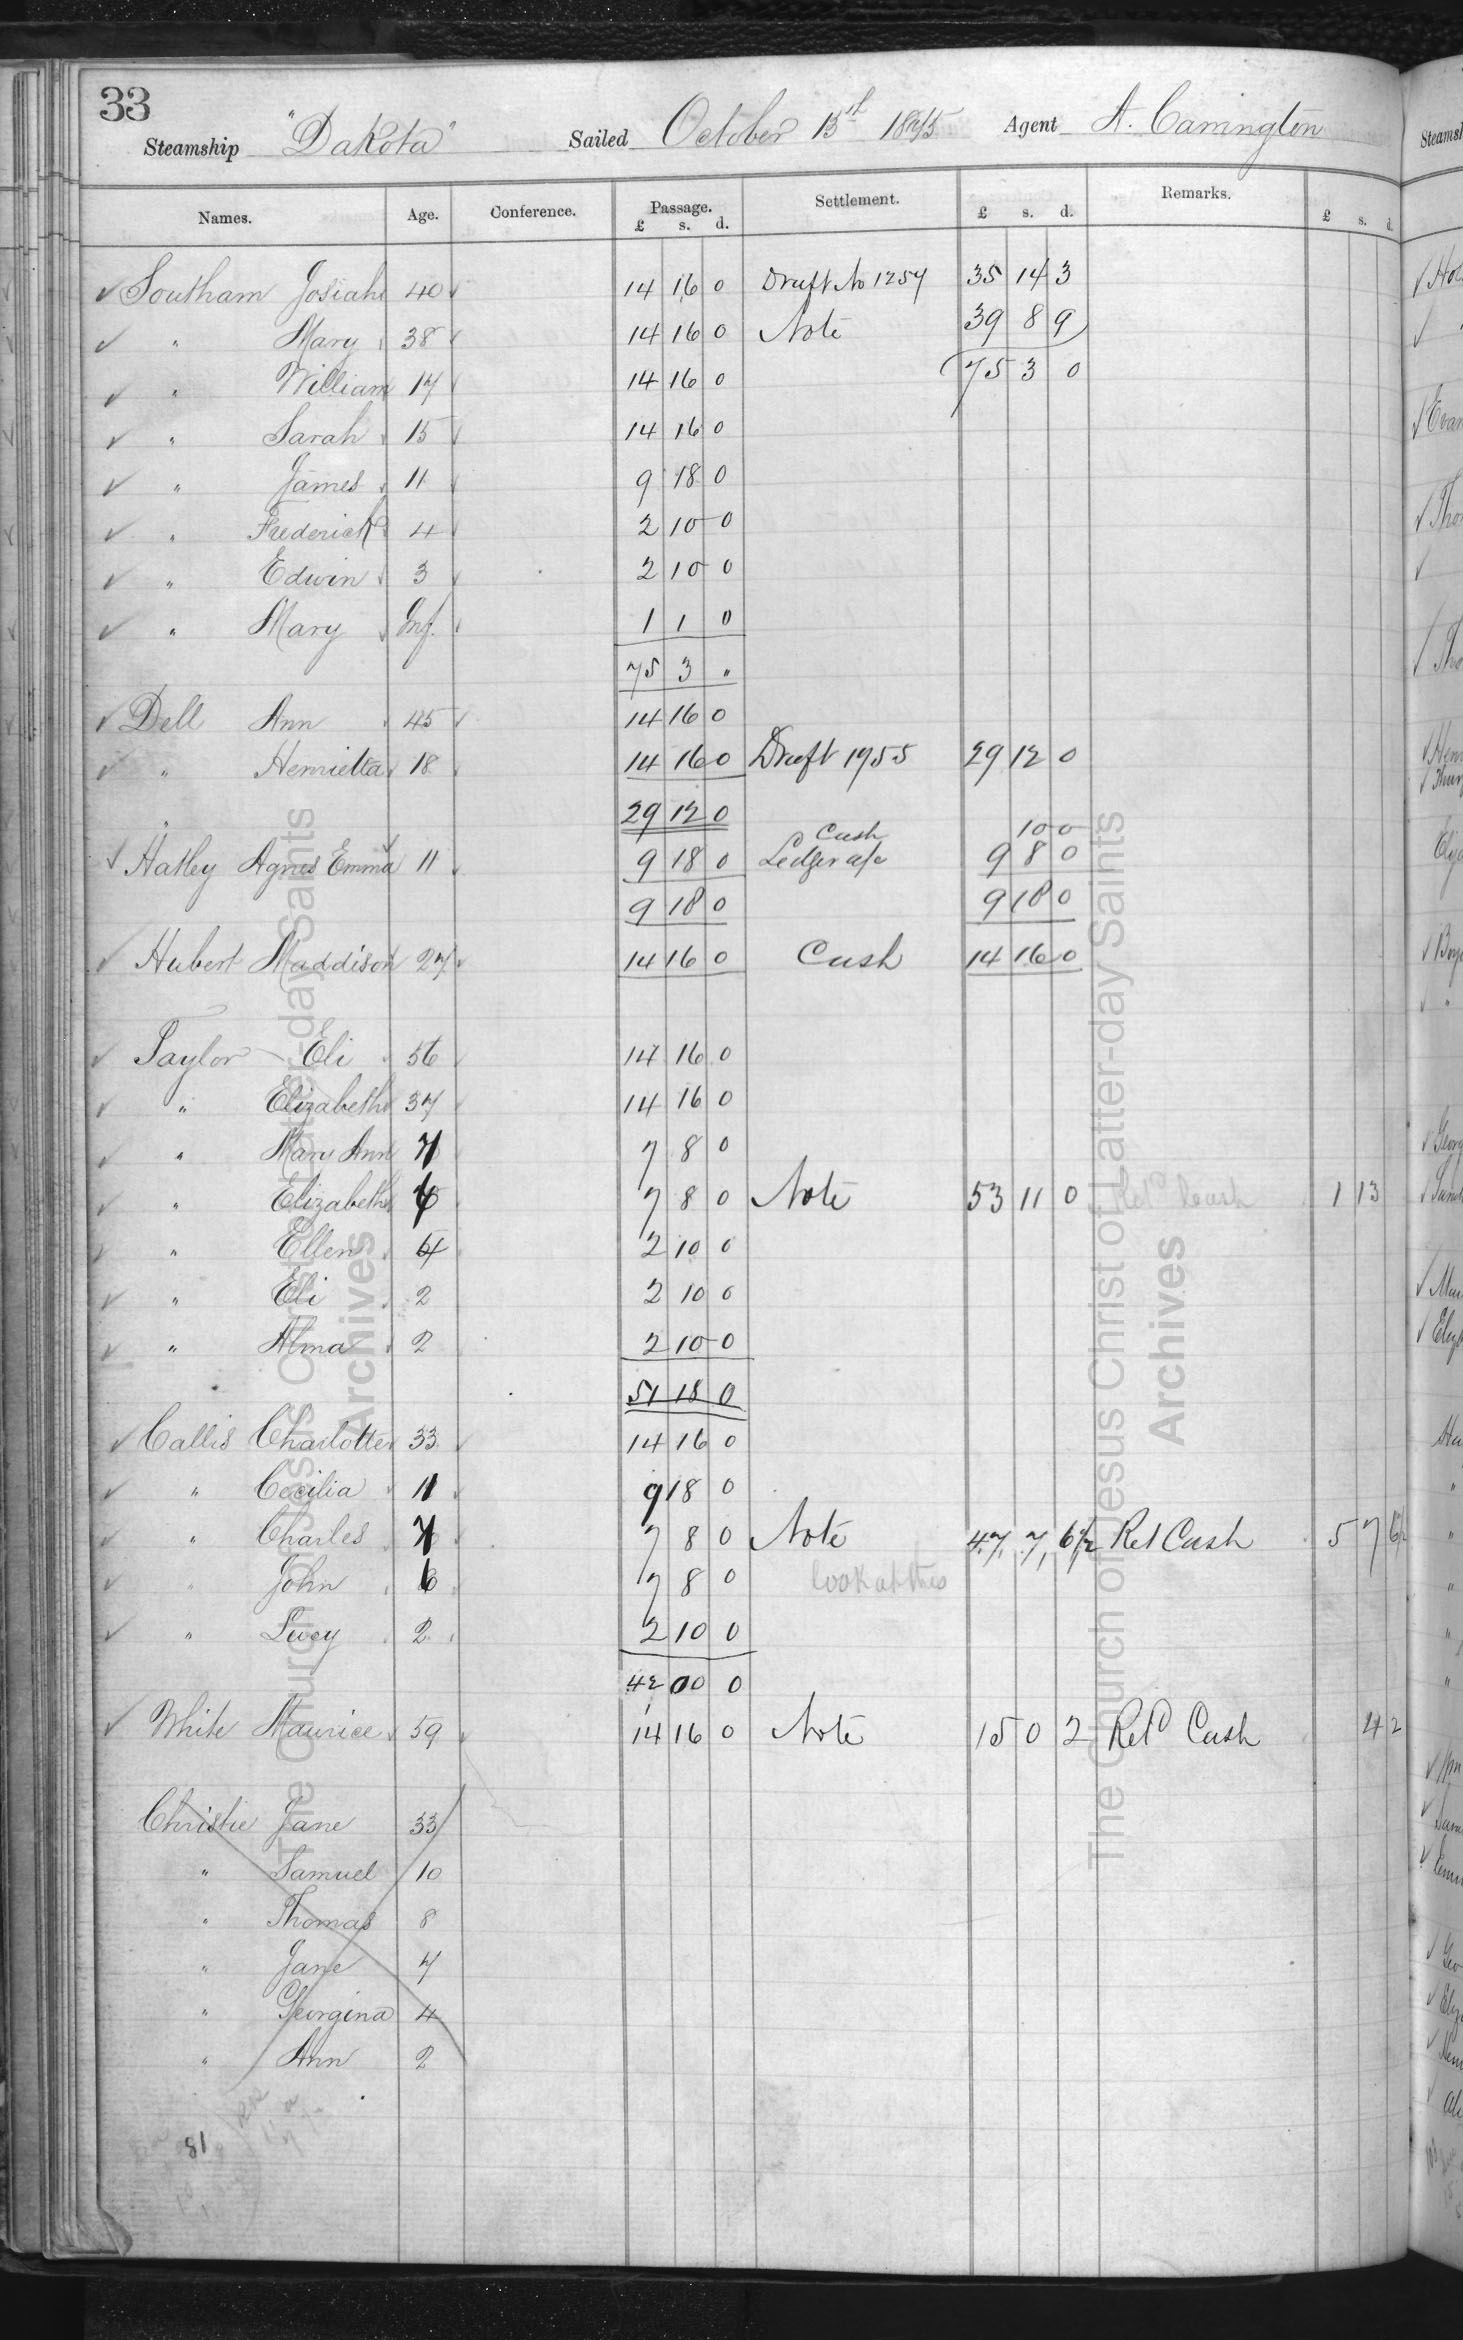 33
Steamship "Dakota" Sailed October 13th 1875 Agent A. Carrington
Names. Age. Conference. Passage. £ s. d. Settlement. £ s. d. Remarks. £ s. d.
Southam Josiah 40 14 16 0 Draft No 1257 35 14 3
" Mary 38 14 16 0 Note 39 8 9
" William 17 14 16 0 75 3 0
" Sarah 15 14 16 0
" James 11 9 18 0
" Frederick 4 2 10 0
" Edwin 3 2 10 0
" Mary Inf. 1 1 0
75 3 "
Dell Ann 45 14 16 0
" Henrietta 18 14 16 0 Draft 1955 29 12 0
29 12 0
Cash 10 0
Hatley Agnes Emma 11 9 18 0 Ledger a/c 9 8 0
9 18 0 9 18 0
Hubert Maddison 27 14 16 0 Cash 14 16 0
Taylor Eli 56 14 16 0
" Elizabeth 37 14 16 0
" Mary Ann 7 7 8 0
" Elizabeth 7 8 0 Note 53 11 0 Retd Cash 1 13
" Ellen 4 2 10 0
" Eli 2 2 10 0
" Alma 2 2 10 0
51 18 0
Callis Charlotte 33 14 16 0
" Cecilia 11 9 18 0
" Charles 7 7 8 0 Note 47 7 6½ Ret Cash 5 7 6½
" John 6 7 8 0 look at this
" Lucy 2 2 10 0
42 00 0
White Maurice 59 14 16 0 Note 15 0 2 Retd Cash 4 2
Christie Jane 33
" Samuel 10
" Thomas 8
" Jane 7
" Georgina 4
" Ann 2
81
The Church of Jesus Christ of Latter-day Saints
Archives
The Church of Jesus Christ of Latter-day Saints
Archives